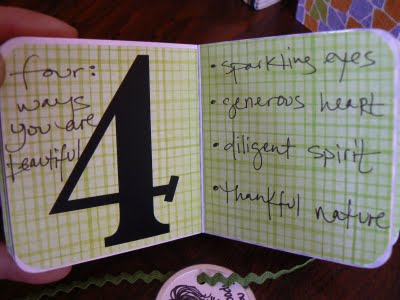 four:
ways
you are
beautiful
4
• sparkling eyes
• generous heart
• diligent spirit
• thankful nature